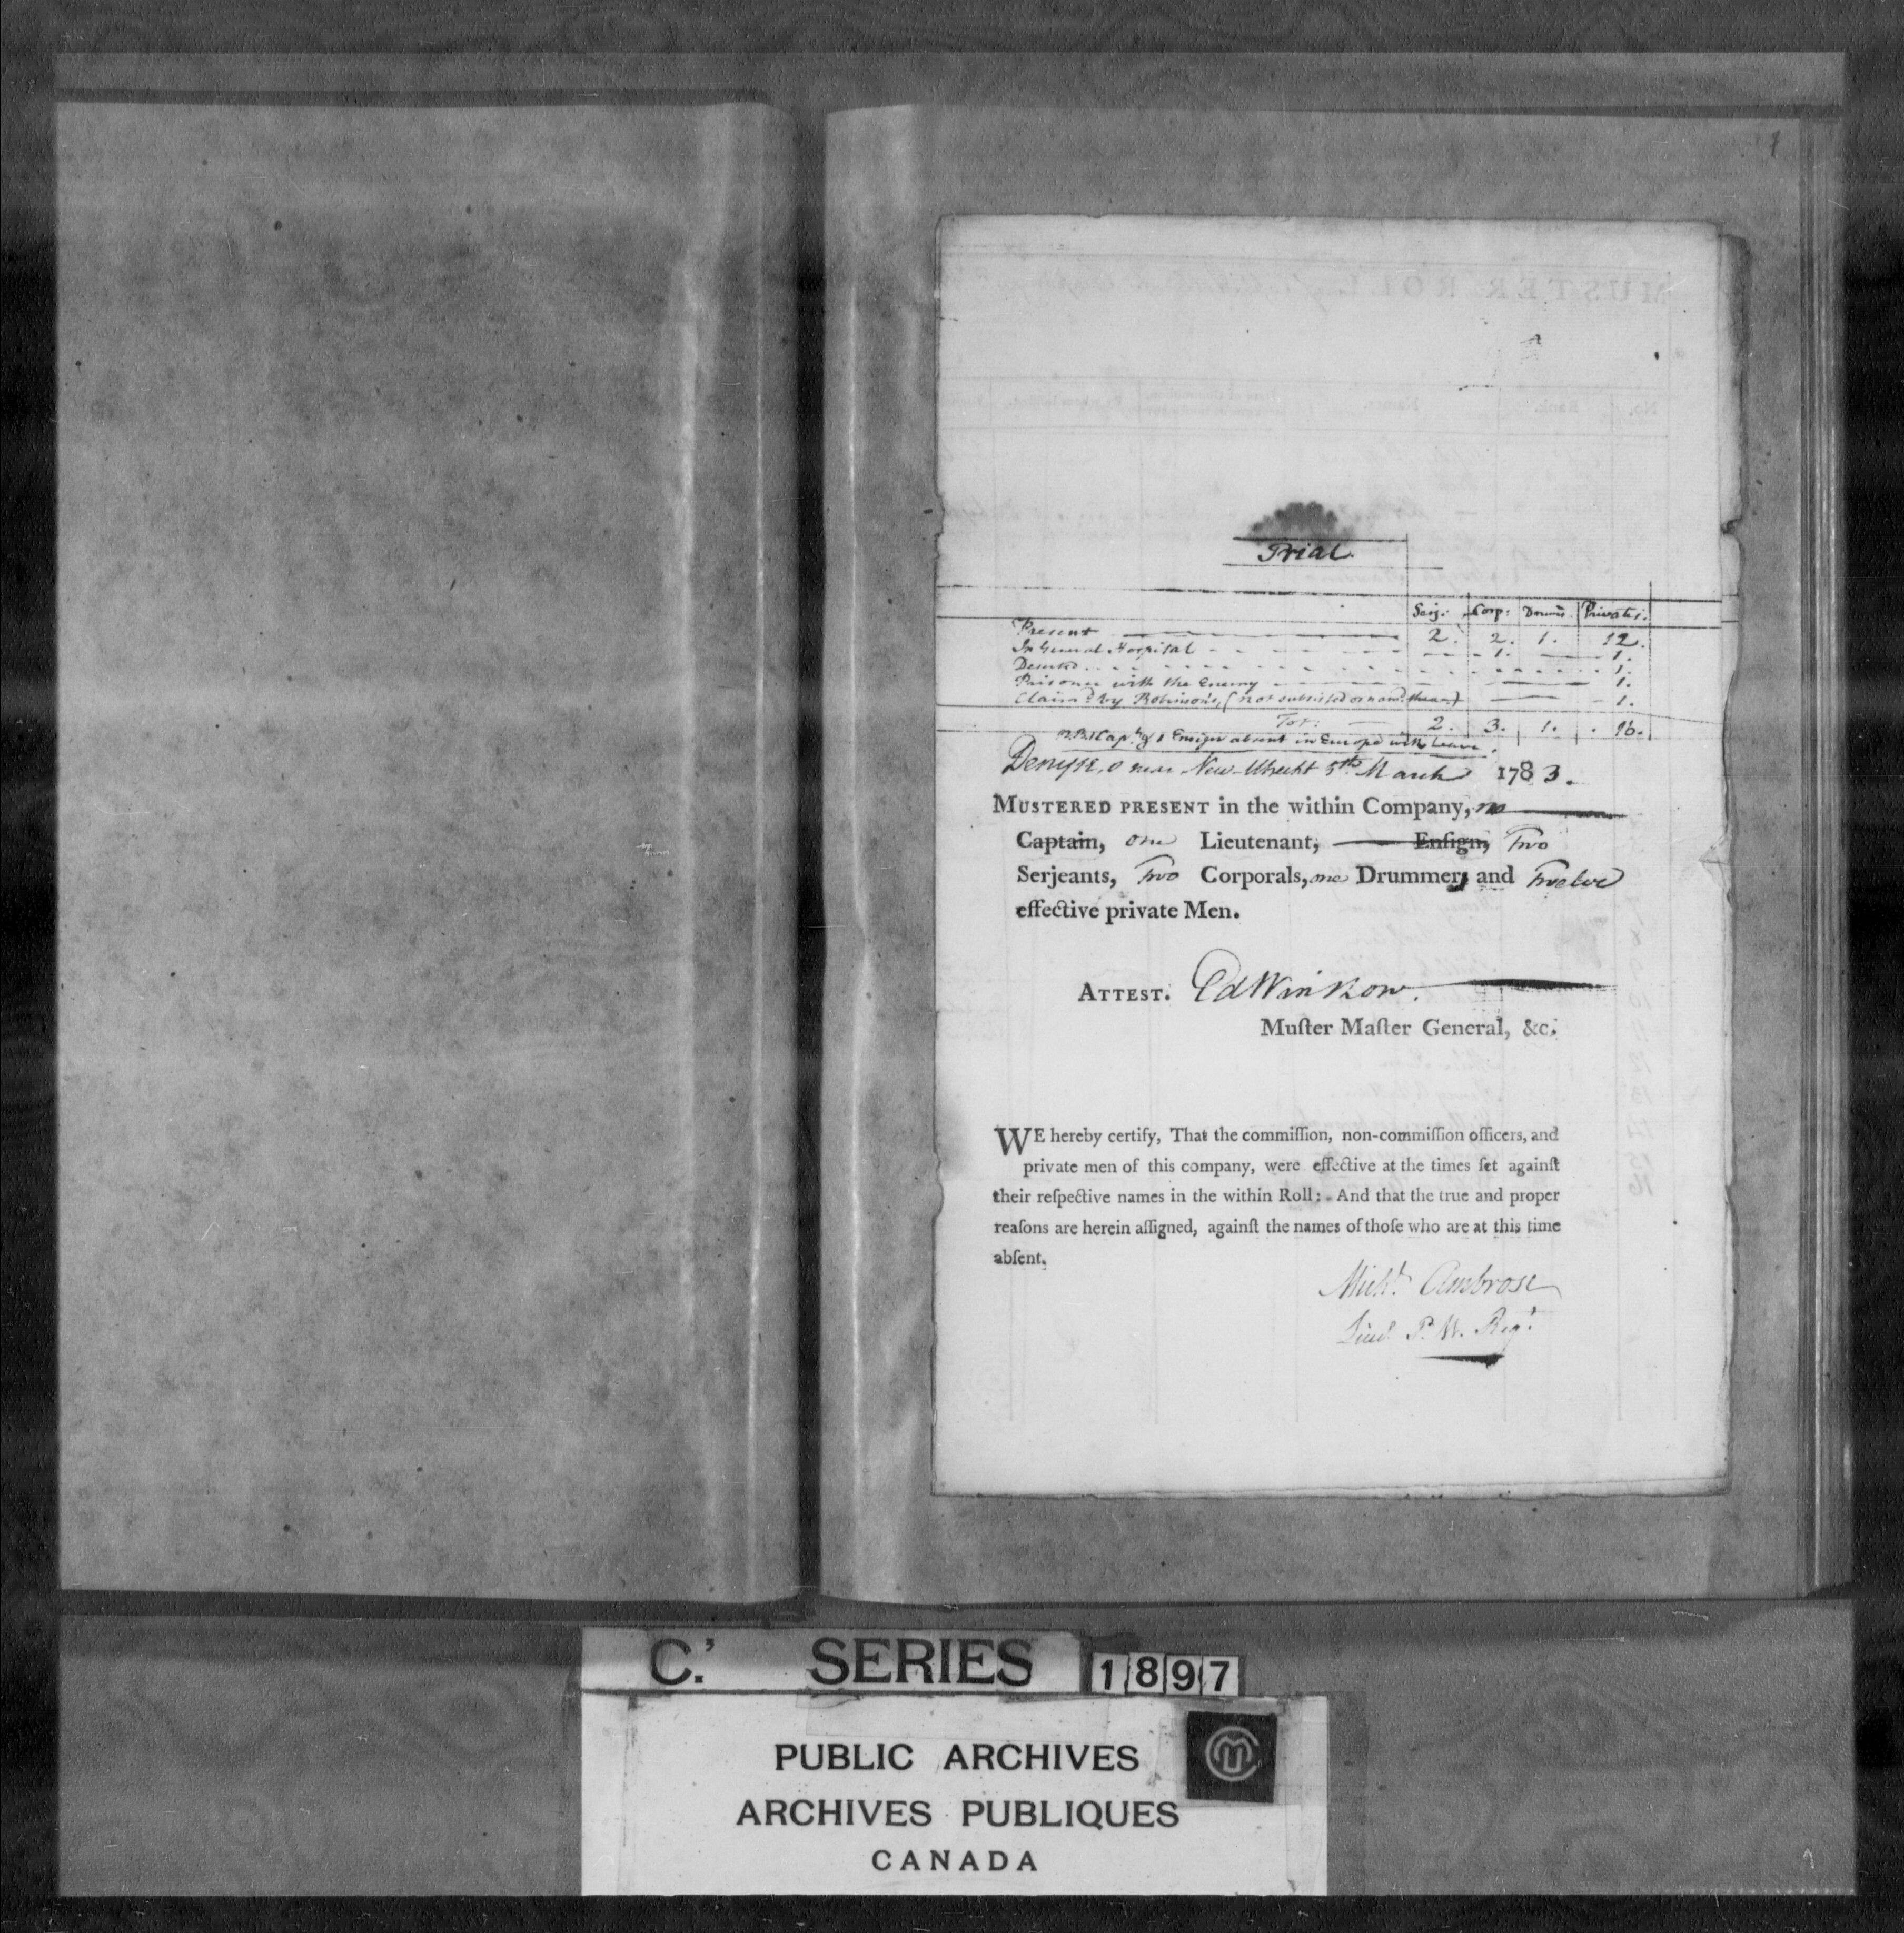 1
Trial.
Serj: Corp: Drum̃s Privates:
Present 2. 2. 1. 12.
In General Hospital 1. 1.
Deserted 1.
Prisoner with the Enemy 1.
Claim'd by Robinson's, (not subsisted or 1.
Tot: 2. 3. 1. 16.
N.B. 1 Capt. & 1 Ensign absent in Europe with Leave.
Denyse,s near New-Utrecht 5th March 1783.
MUSTERED PRESENT in the within Company, no
Captain, one Lieutenant, Enſign, Two
Serjeants, Two Corporals, one Drummer, and Twelve
effective private Men.
ATTEST. Ed Winslow.
Muſter Maſter General, &c.
WE hereby certify, That the commiſſion, non-commiſſion officers, and
private men of this company, were effective at the times ſet againſt
their reſpective names in the within Roll: And that the true and proper
reaſons are herein aſſigned, againſt the names of thoſe who are at this time
abſent.
Michl. Ambrose
Lieut P. W. Regt
C.' SERIES 1897
PUBLIC ARCHIVES
ARCHIVES PUBLIQUES
CANADA